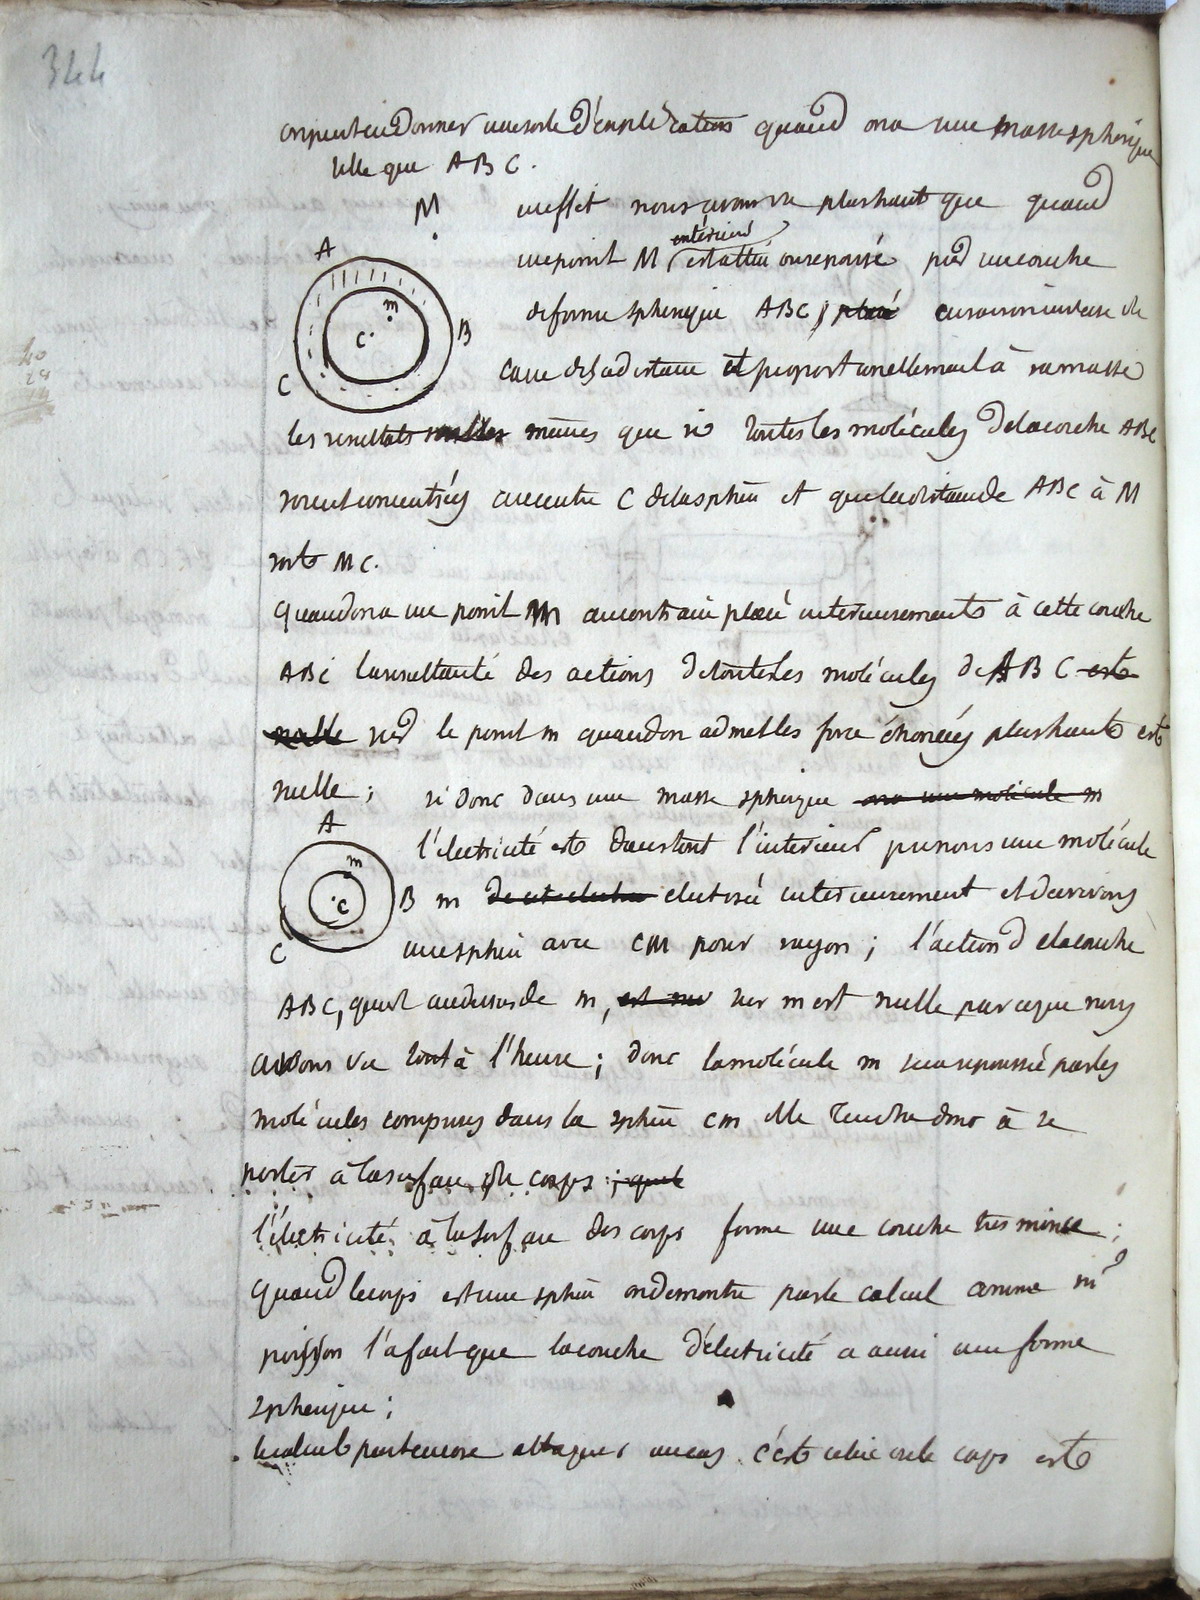 344
on peut en donner une sorte d'explication quand on a une masse spherique
telle que ABC.
M
en effet nous avons vu plus haut que quand
A
exterieur
un point M est attiré ou repoussé par une couche
m
B
de forme spherique ABC, placé en raison inverse du
C.
carré de sa distance et proportionellement à sa masse
C
les resultats sont les mêmes que si toutes les molécules de la couche ABC
soient concentrées au centre C de la sphère et que la distance de ABC à M
soit MC.
Quand on a un point m au contraire placé interieurement à cette couche
ABC la resultante des actions de toutes les molécules de ABC est
nulle sur le point m quand on admet les force énoncées plus haut est
nulle; si donc dans une masse spherique on a une molécule m
A
l'électricité est dans tout l'interieur prenons une molécule
m
B
C
m électrisé interieurement et decrivons
C
une sphère avec cm pour rayon; l'action de la couche
ABC, qui est au dessus de m, sur m est nulle par ce que nous
avons vu tout à l'heure; donc la molécule m sera repoussée par les
molécules comprises dans la sphère cm elle tendra donc à se
porter à la surface du corps
l'électricité à la surface des corps forme une couche tres mince;
Quand le corps est une sphère on demontre par le calcul comme mr
poisson l'a fait que la couche d'électricité a aussi une forme
spherique;
le calcul peut encore attaquer un cas c'est celui où le corps est